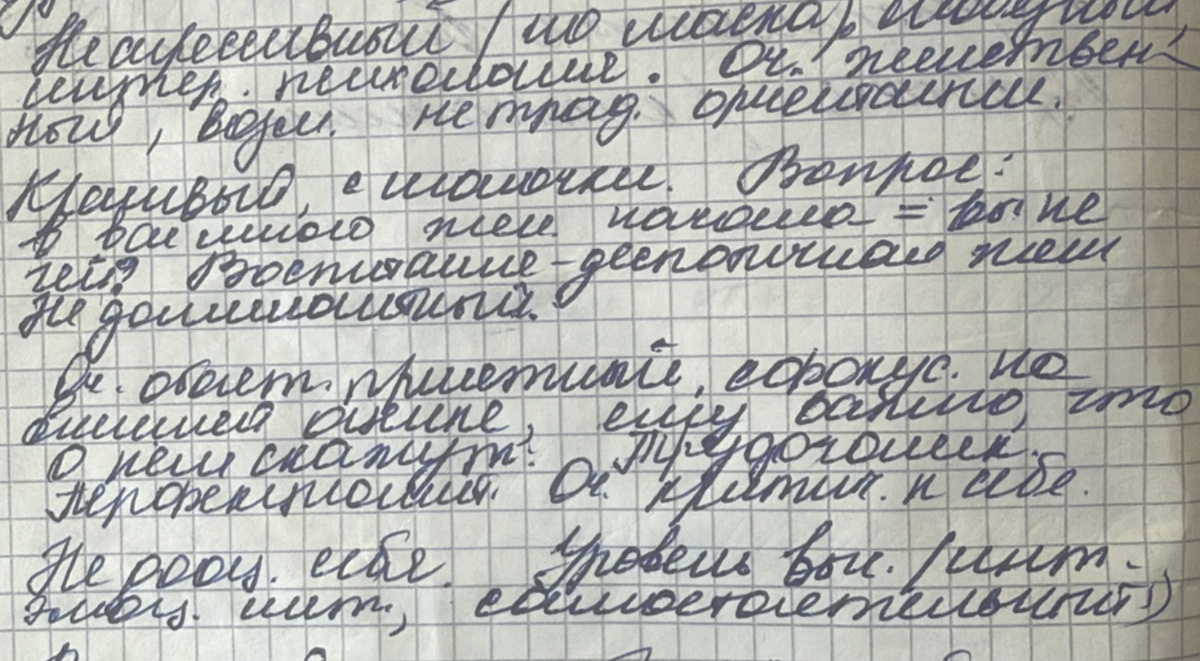 Неагрессивный (но маска),
интер. психология. Оч. женствен-
ный, возм. нетрад. ориентации.
Красивый, с иголочки. Вопрос:
в вас много жен. начала = вы не
гей? Воспитание - деспотичная жен
Не доминантный.
Оч. обаят. приятный, сфокус. на
внешней оценке, ему важно, что
о нем скажут. Трудоголик.
Перфекционист. Оч. критич. к себе.
Не дооц. себя. Уровень выс. (инт.
эмоц. инт., самостоятельный!)